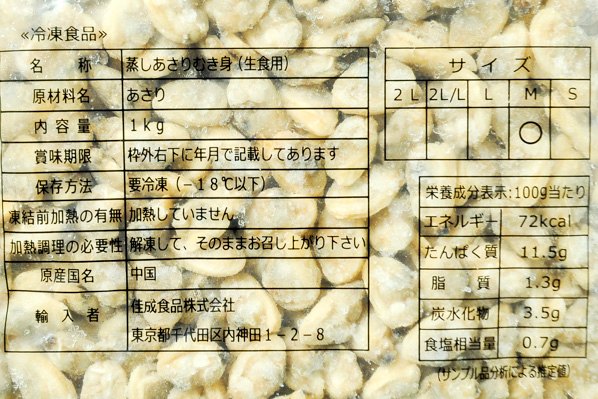 ≪冷凍食品≫
名 称 蒸しあさりむき身（生食用）
原材料名 あさり
内容量 1kg
賞味期限 枠外右下に年月で記載してあります
保存方法 要冷凍（－18℃以下）
凍結前加熱の有無 加熱していません
加熱調理の必要性 解凍して、そのままお召し上がり下さい
原産国名 中国
輸入者 佳成食品株式会社
東京都千代田区内神田1－2－8
サイズ
2L 2L/L L M S
○
栄養成分表示:100g当たり
エネルギー 72kcal
たんぱく質 11.5g
脂 質 1.3g
炭水化物 3.5g
食塩相当量 0.7g
(サンプル品分析による推定値)